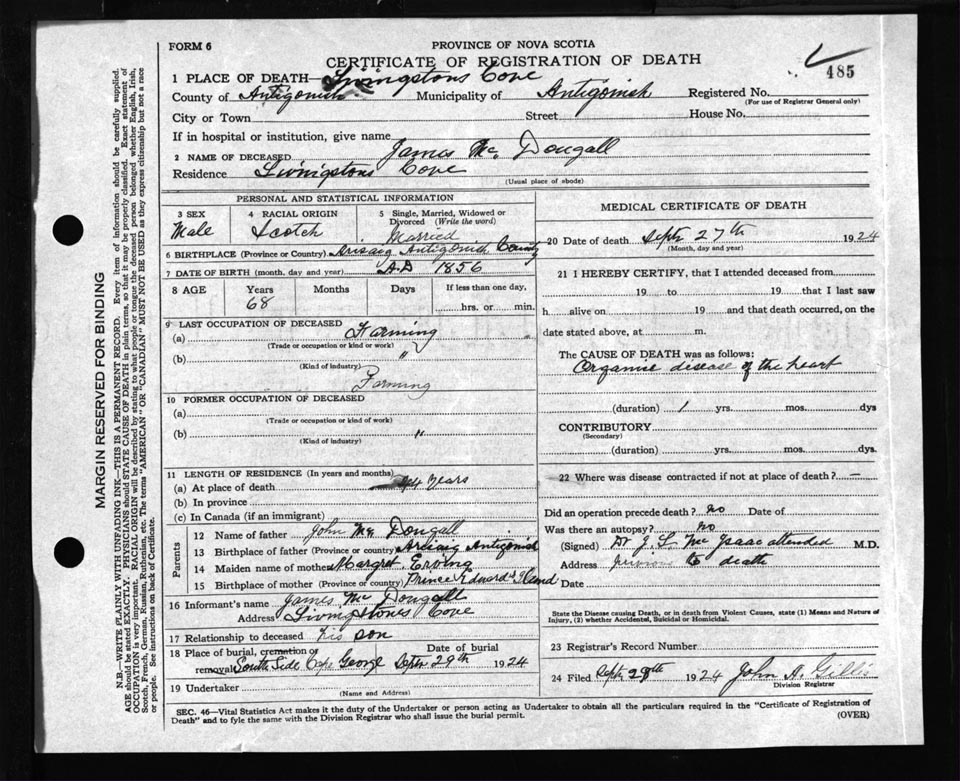 FORM 6
PROVINCE OF NOVA SCOTIA
CERTIFICATE OF REGISTRATION OF DEATH
485
1 PLACE OF DEATH—Livingstons Cove
County of Antigonish Municipality of Antigonish Registered No.
(For use of Registrar General only)
City or Town Street House No.
If in hospital or institution, give name
2 NAME OF DECEASED James Mc Dougall
Residence Livingstons Cove
(Usual place of abode)
PERSONAL AND STATISTICAL INFORMATION
3 SEX 4 RACIAL ORIGIN 5 Single, Married, Widowed or Divorced (Write the word)
Male Scotch Married
6 BIRTHPLACE (Province or Country) Arisaig Antigonish County
7 DATE OF BIRTH (month, day and year) A.D 1856
8 AGE Years Months Days If less than one day,
68 hrs. or min.
9 LAST OCCUPATION OF DECEASED
(a) Farming
(Trade or occupation or kind or work)
(b) "
(Kind of industry)
Farming
10 FORMER OCCUPATION OF DECEASED
(a)
(Trade or occupation or kind of work)
(b) "
(Kind of industry)
11 LENGTH OF RESIDENCE (In years and months)
(a) At place of death 44 years
(b) In province
(c) In Canada (if an immigrant)
Parents
12 Name of father John Mc Dougall
13 Birthplace of father (Province or country) Arisaig Antigonish
14 Maiden name of mother Margret Erving
15 Birthplace of mother (Province or country) Prince Edward Island
16 Informant's name James Mc Dougall
Address Livingstones Cove
17 Relationship to deceased his son
18 Place of burial, cremation or removal South Side Cape George Date of burial Sept 29th 1924
19 Undertaker
(Name and Address)
MEDICAL CERTIFICATE OF DEATH
20 Date of death Sept 27th 1924
(Month, day and year)
21 I HEREBY CERTIFY, that I attended deceased from
19 to 19 that I last saw
h alive on 19 and that death occurred, on the
date stated above, at m.
The CAUSE OF DEATH was as follows:
Organic disease of the heart
(duration) 1 yrs. mos. dys
CONTRIBUTORY
(Secondary)
(duration) yrs. mos. dys.
22 Where was disease contracted if not at place of death? —
Did an operation precede death? no Date of
Was there an autopsy? no
(Signed) Dr J. L. Mc Isaac attended M.D.
Address previous to death
Date
State the Disease causing Death, or in death from Violent Causes, state (1) Means and Nature of
Injury, (2) whether Accidental, Suicidal or Homicidal.
23 Registrar's Record Number
24 Filed Sept 1924 John A. Gillis
Division Registrar
SEC. 46—Vital Statistics Act makes it the duty of the Undertaker or person acting as Undertaker to obtain all the particulars required in the "Certificate of Registration of
Death" and to fyle the same with the Division Registrar who shall issue the burial permit.
(OVER)
MARGIN RESERVED FOR BINDING
N.B.—WRITE PLAINLY WITH UNFADING INK—THIS IS A PERMANENT RECORD. Every item of information should be carefully supplied.
AGE should be stated EXACTLY. PHYSICIANS should STATE CAUSE OF DEATH in plain terms, so that it may be properly classified. Exact statement of
OCCUPATION is very important. RACIAL ORIGIN will be described by stating to what people or tongue the deceased person belonged whether English, Irish,
Scotch, French, German, Russian, Ruthenian, etc. The terms "AMERICAN" OR "CANADIAN" MUST NOT BE USED as they express citizenship but not a race
or people. See instructions on back of Certificate.